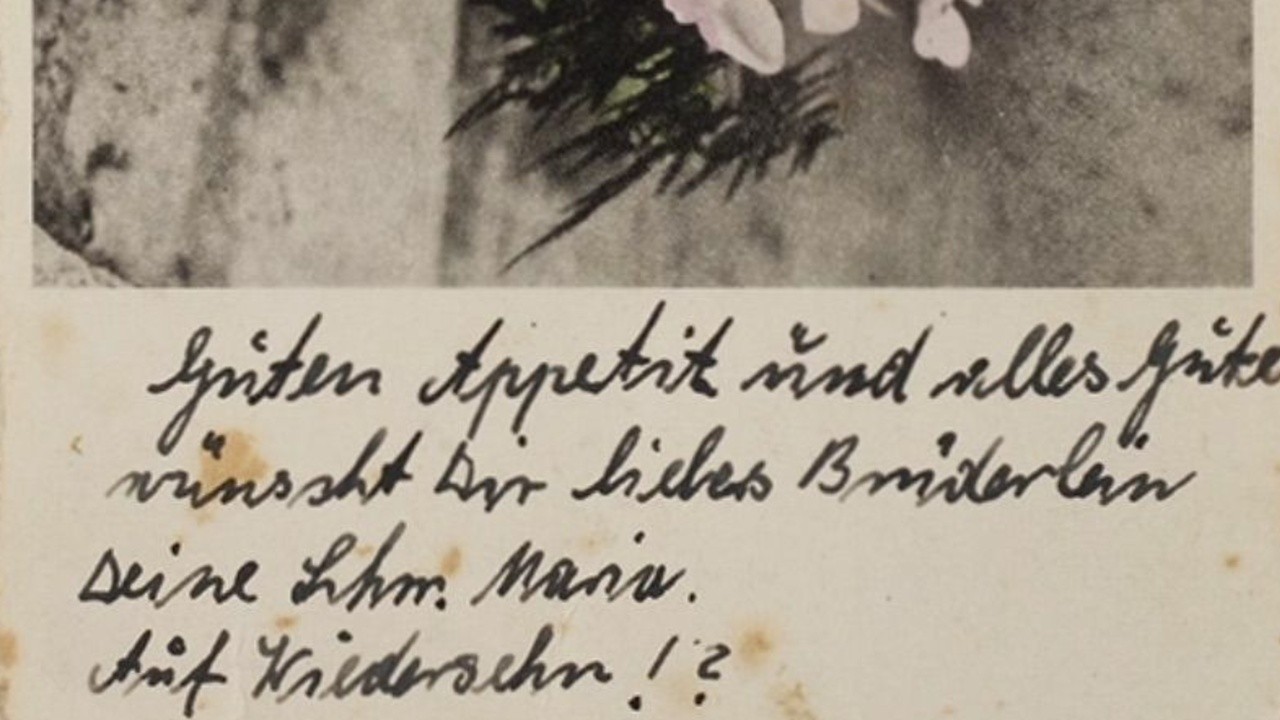 Guten Appetit und alles Gute
wünscht Dir liebes Brüderlein
Deine Schw. Maria.
Auf Wiedersehn!?